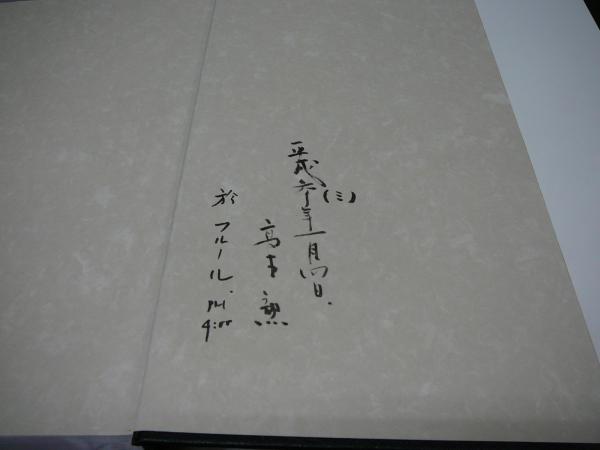 平成六年一月四日.
(三)
高木勲
於フルール. PM.
4:00